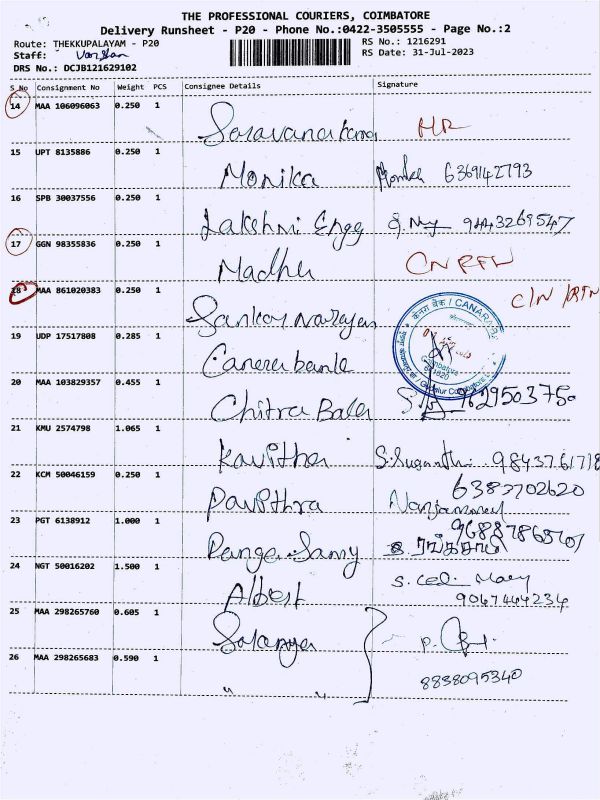 THE PROFESSIONAL COURIERS, COIMBATORE
Delivery Runsheet - P20 - Phone No.:0422-3505555 - Page No.:2
Route: THEKKUPALAYAM - P20
RS No.: 1216291
Staff:
RS Date: 31-Jul-2023
DRS No.: DCJB121629102
S No Consignment No Weight PCS Consignee Details Signature
14 MAA 106096063 0.250 1
Saravanakumar
15 UPT 8135886 0.250 1
Monika 6369142793
16 SPB 30037556 0.250 1
Lakshmi Engg 9443269547
17 GGN 98355836 0.250 1
Madhu
18 MAA 861020383 0.250 1
Sankar Narayan
19 UDP 17517808 0.285 1
Canera bank
केनरा बैंक / CANARA
Coimbatore
20 MAA 103829357 0.455 1
Chitra Bala
21 KMU 2574798 1.065 1
Kavitha S. Suganthi 9843761718
22 KCM 50046159 0.250 1
6383702620
Pavithra
23 PGT 6138912 1.000 1
Ranga Samy ரங்கசாமி
24 NGT 50016202 1.500 1
Albert Mary
9047444234
25 MAA 298265760 0.605 1
Sukanya
26 MAA 298265683 0.590 1
8838095340
" "